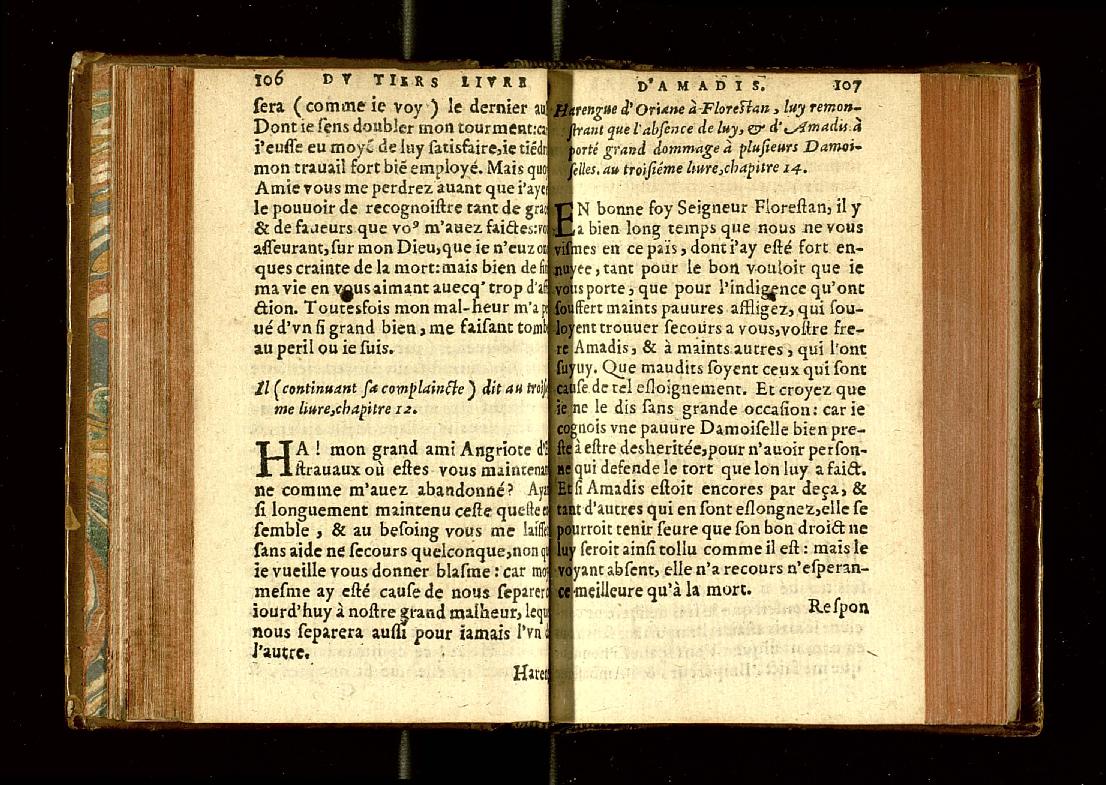 106 DV TIERS LIVRE
sera ( comme ie voy ) le dernier au
Dont ie sens doubler mon tourment:ca
i'eusse eu moyẽ de luy satisfaire,ie tiẽd
mon trauail fort biẽ employé. Mais quo
Amie vous me perdrez auant que i'aye
le pouuoir de recognoistre tant de gra
& de faueurs que voꝰ m'auez faictes:vo
asseurant,sur mon Dieu,que ie n'euz on
ques crainte de la mort:mais bien de fin
ma vie en vous aimant auecq' trop d'af
ction. Toutesfois mon mal-heur m'a p
ué d'vn si grand bien, me faisant tomb
au peril ou ie suis.
Il (continuant sa complaincte) dit au trois
me liure,chapitre 12.
HA ! mon grand ami Angriote d'E
strauaux où estes vous maintenan
ne comme m'auez abandonné? Aya
si longuement maintenu ceste queste
semble , & au besoing vous me laisse
sans aide ne secours quelconque,non q
ie vueille vous donner blasme : car mo
mesme ay esté cause de nous separer
iourd'huy à nostre grand malheur, lequ
nous separera aussi pour iamais l'vn d
l'autre.
Haren
D'AMADIS. 107
Harengue d'Oriane à Florestan, luy remon-
strant que l'absence de luy, & d'Amadis à
porté grand dommage à plusieurs Damoi-
selles. au troisiéme liure,chapitre 14.
EN bonne foy Seigneur Florestan, il y
a bien long temps que nous ne vous
vismes en ce païs, dont i'ay esté fort en-
nuyee, tant pour le bon vouloir que ie
vous porte, que pour l'indigence qu'ont
souffert maints pauures affligez, qui sou-
loyent trouuer secours a vous,vostre fre-
re Amadis, & à maints autres, qui l'ont
suyuy. Que maudits soyent ceux qui sont
cause de tel esloignement. Et croyez que
ie ne le dis sans grande occasion: car ie
cognois vne pauure Damoiselle bien pre-
ste à estre desheritée,pour n'auoir person-
ne qui defende le tort que lon luy a faict.
Et si Amadis estoit encores par deça, &
tant d'autres qui en sont eslongnez,elle se
pourroit tenir seure que son bon droict ne
luy seroit ainsi tollu comme il est : mais le
voyant absent, elle n'a recours n'esperan-
ce meilleure qu'à la mort.
Respon